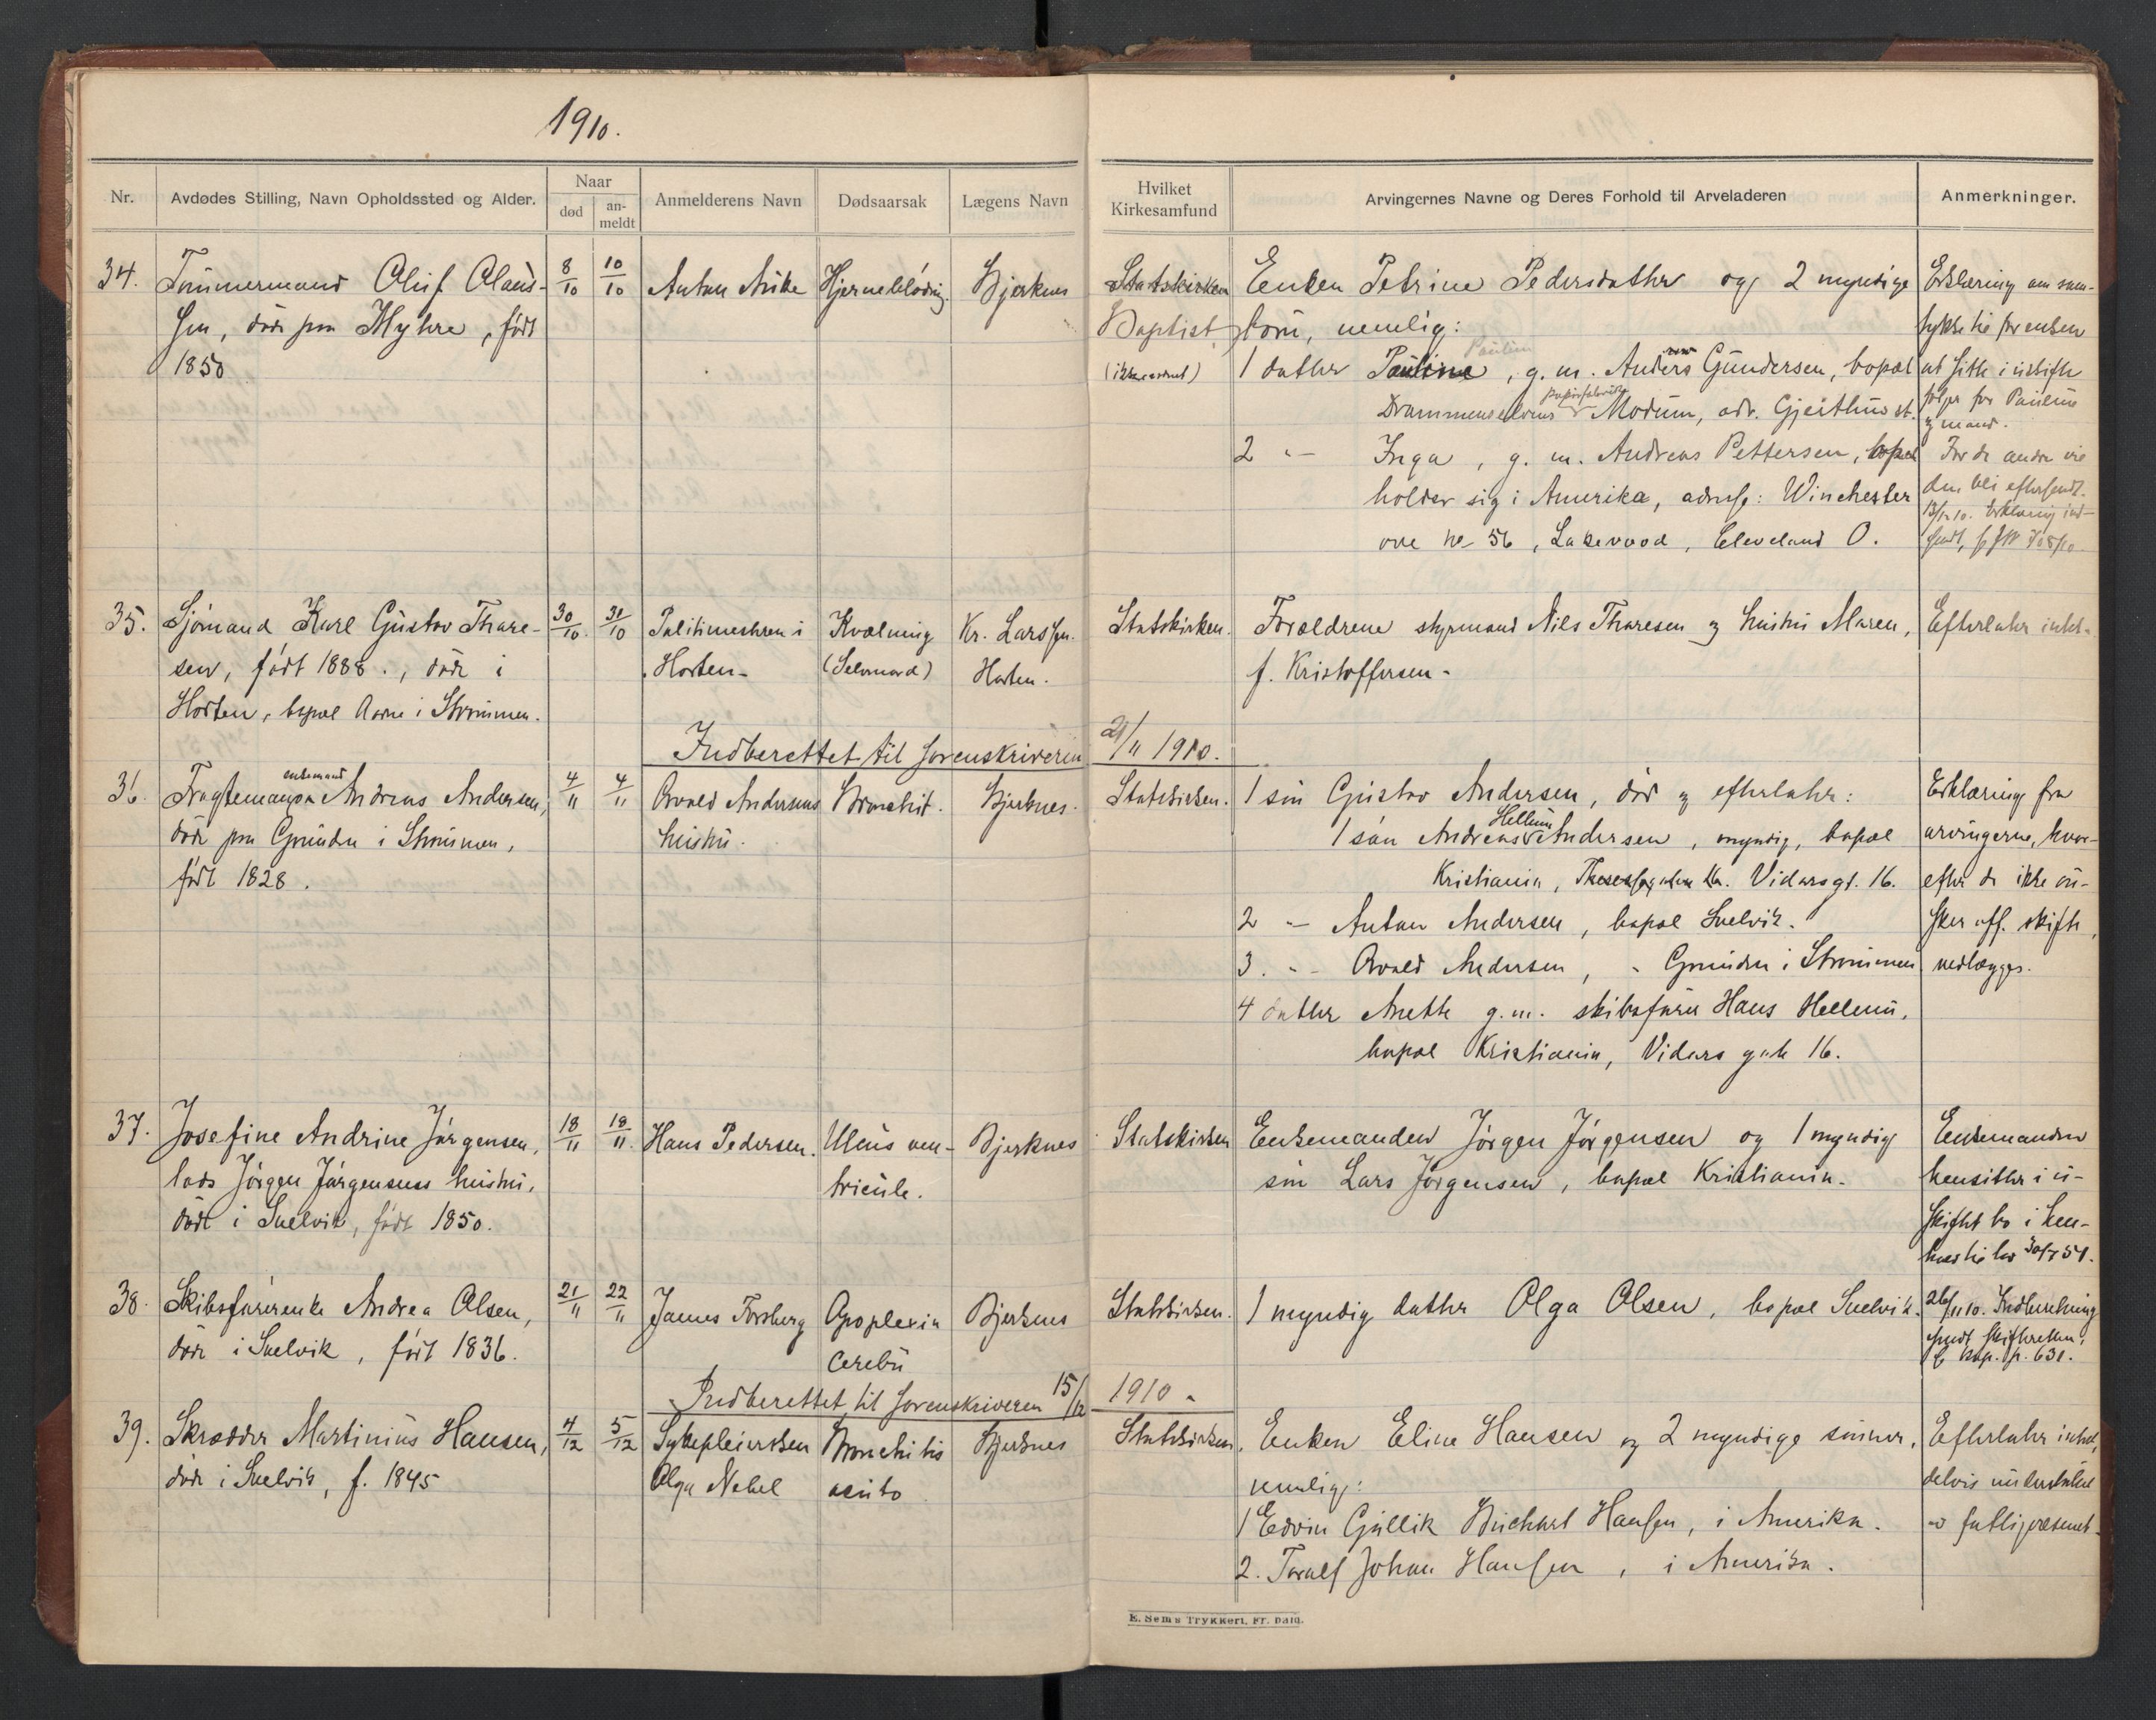 1910.
Nr.
Avdødes Stilling, Navn Opholdssted og Alder.
Naar
død
an-
meldt
Anmelderens Navn
Dødsaarsak
Lægens Navn
Hvilket
Kirkesamfund
Arvingernes Navne og Deres Forhold til Arveladeren
Anmerkninger.
34.
Tømmermand Oluf Olaus-
sen, død paa Myhre, født
1850
8/10
10/10
Anton
Hjerneblødnig.
Bjerknes
Statskirken
Baptist
Enken Petrine Pedersdatter og 2 myndige
barn, nemlig:
1 datter Pauline, g. m. Anders Gundersen, bopæl
Paulin
Drammenselvens papirfabrik Modum, adr. Gjeithus st.
2 " Inga, g. m. Andreas Pettersen, bopæl
holder sig i Amerika, adresse: Winchester
ave no 56, Lakewood, Cleveland O.
Erklæring om sam-
tykke til for enken
at sitte i uskifte
følger for Pauline
og mand.
For de andre vil
den bli eftersendt.
35.
Sjømand Karl Gustav Thore-
sen, født 1888., død i
Horten, bopæl Aarne i Strømmen.
30/10.
31/10
Politimesteren i
Horten-
Kvælning
(Selvmord)
Kr. Larssen.
Horten.
Statskirken.
Forældrene styrmand Nils Thoresen og hustru Maren,
f. Kristoffersen-
Efterlater intet-
Indberettet til sorenskriveren 21/11 1910.
36.
enkemand
Fragtemand Andreas Andersen,
død paa Grunden i Strømmen,
født 1828.
4/11
4/11
Osvald Andersens
hustru.
Bronchit.
Bjerknes.
Statskirken.
1 søn Gustav Andersen, død og efterlater:
Hellum
1 søn Andreas Andersen, myndig, bopæl
Kristiania, Vidarsgt. 16.
2 " Anton Andersen, bopæl Svelvik.
3. " Osvald Andersen, " Grunden i Strømmen
4 datter Anette g.m. skibsfører Hans Hellum,
bopæl Kristiania, Vidars gate 16.
Erklæring fra
arvingerne, hvor-
efter de ikke øn-
sker off. skifte,
vedlægges.
37.
Josefine Andrine Jørgensen,
lods Jørgen Jørgensens hustru,
død i Svelvik, født 1850.
18/11
18/11.
Hans Pedersen.
Ulcus ven-
tricule.
Bjerknes
Statskirken
Enkemanden Jørgen Jørgensen og 1 myndig
søn Lars Jørgensen, bopæl Kristiania.
Enkemanden
hensitter i u-
skiftet bo i hen-
hold til lov 30/7 51.
38.
Skibsførerenke Andrea Olsen,
død i Svelvik, født 1836.
21/11
22/11
James Forsberg
Apoplexia
cerebri
Bjerknes
Statskirken.
1 myndig datter Olga Olsen, bopæl Svelvik.
26/11 10. Indberetning
sendt skifteretten,
kop. p. 631.
Indberettet til sorenskriveren 15/12 1910.
39.
Skrædder Martinius Hansen,
død i Svelvik, f. 1845
4/12
5/12
Sykepleiersken
Olga Nebel
Bronchitis
acuto
Bjerknes
Statskirken.
Enken Eline Hansen og 2 myndige sønner,
nemlig:
1 Edvin Gullik Buchart Hansen, i Amerika.
2. Toralf Johan Hansen, i Amerika.
Efterlater intet,
delvis understøttet
av fattigvæsenet.
E. Sems Trykkeri, Fr. hald.